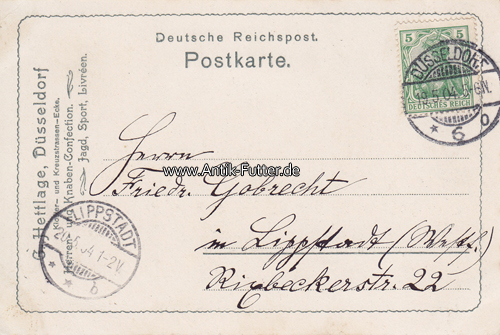 Deutsche Reichspost.
Postkarte.
5 5
DEUTSCHES REICH
DÜSSELDORF
18.5.04
* 6 b
G. Hettlage, Düsseldorf
Kloster- und Kreuzstrassen-Ecke.
Herren- und Knaben-Confection.
Jagd, Sport, Livréen.
Herrn
www.Antik-Futter.de
Friedr. Gobrecht
in Lippstadt (Westf.)
Riebeckerstr. 22
LIPPSTADT
5.04.1-2V.
* b